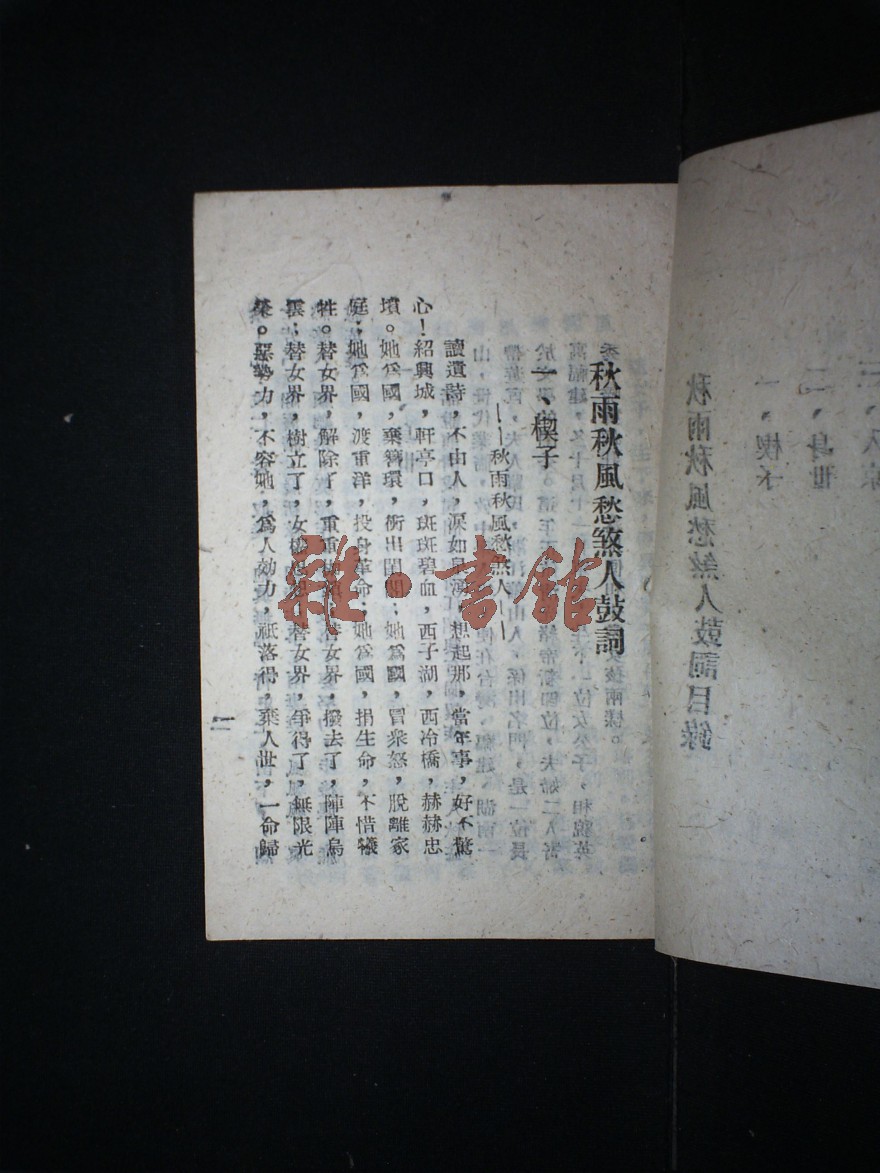 秋雨秋風愁煞人鼓詞
一、楔子
——秋雨秋風愁煞人——
讀遺詩，不由人，淚如泉湧，想起那，當年事，好不驚
心！紹興城，軒亭口，斑斑碧血，西子湖，西冷橋，赫赫忠
墳。她爲國，棄簪環，衝出閨閣；她爲國，冒衆怒，脫離家
庭；她爲國，渡重洋，投身革命；她爲國，捐生命，不惜犧
牲。替女界，解除了，重重　　，替女界，撥去了，陣陣烏
雲；替女界，樹立了，女　　　，替女界，爭得了，無限光
榮。惡勢力，不容她，爲人効力，祇落得，棄人世，一命歸
一
雜·書館
秋雨秋風愁煞人鼓詞目錄
一、楔子
二、身世